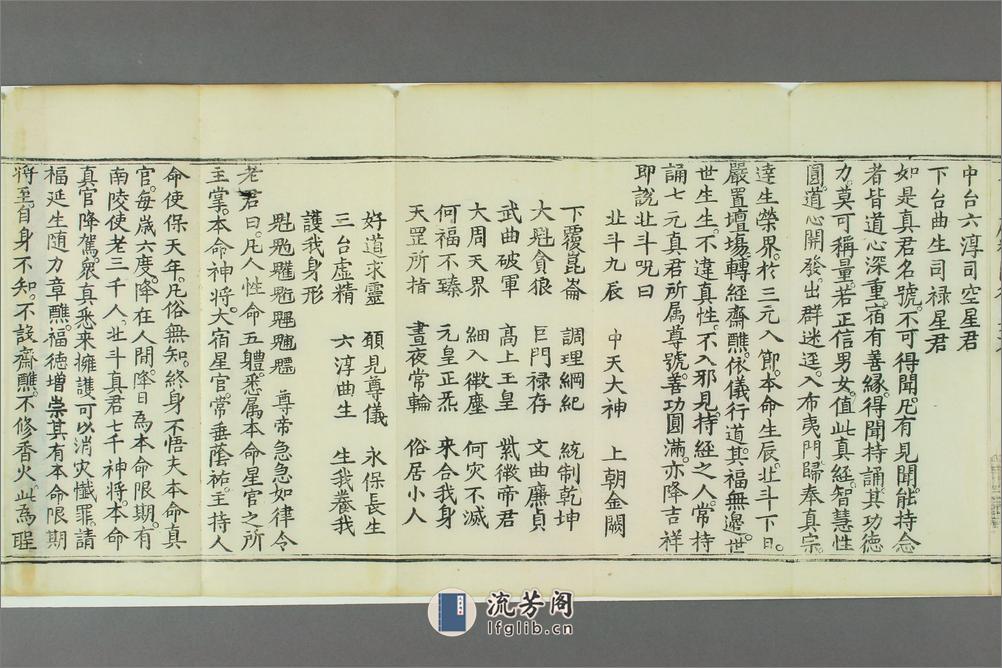 中台六淳司空星君
下台曲生司禄星君
如是真君名號。不可得聞。凡有見聞。能持念
者皆道心深重。宿有善緣。得聞持誦。其功德
力。莫可稱量。若正信男女。值此真經。智慧性
圓。道心開發。出群迷逕。入布夷門。歸奉真宗。
達生榮界。於三元八節。本命生辰。北斗下日。
嚴置壇場。轉經齋醮。依儀行道。其福無邊。世
世生生。不違真性。不入邪見。持經之人。常持
誦七元真君所属尊號。善功圓滿。亦降吉祥
即說北斗呪曰
北斗九辰 中天大神 上朝金闕
下覆崑崙 調理綱紀 統制乾坤
大魁貪狼 巨門禄存 文曲廉貞
武曲破軍 高上玉皇 紫微帝君
大周天界 細入微塵 何灾不滅
何福不臻 元皇正炁 來合我身
天罡所指 晝夜常輪 俗居小人
好道求靈 願見尊儀 永保長生
三台虛精 六淳曲生 生我養我
護我身形
魁 尊帝急急如律令
老君曰。凡人性命五體。悉属本命星官之所
主掌。本命神將。大宿星官。常垂蔭祐。主持人
命使保天年。凡俗無知。終身不悟。夫本命真
官。每歲六度。降在人間。降日為本命限期。有
南陵使者三千人。北斗真君七千神將。本命
真官降駕。衆真悉來擁護。可以消灾懺罪。請
福延生。随力章醮。福德增崇。其有本命限期
將至。自身不知。不設齋醮。不修香火。此為
流芳阁
lfglib.cn